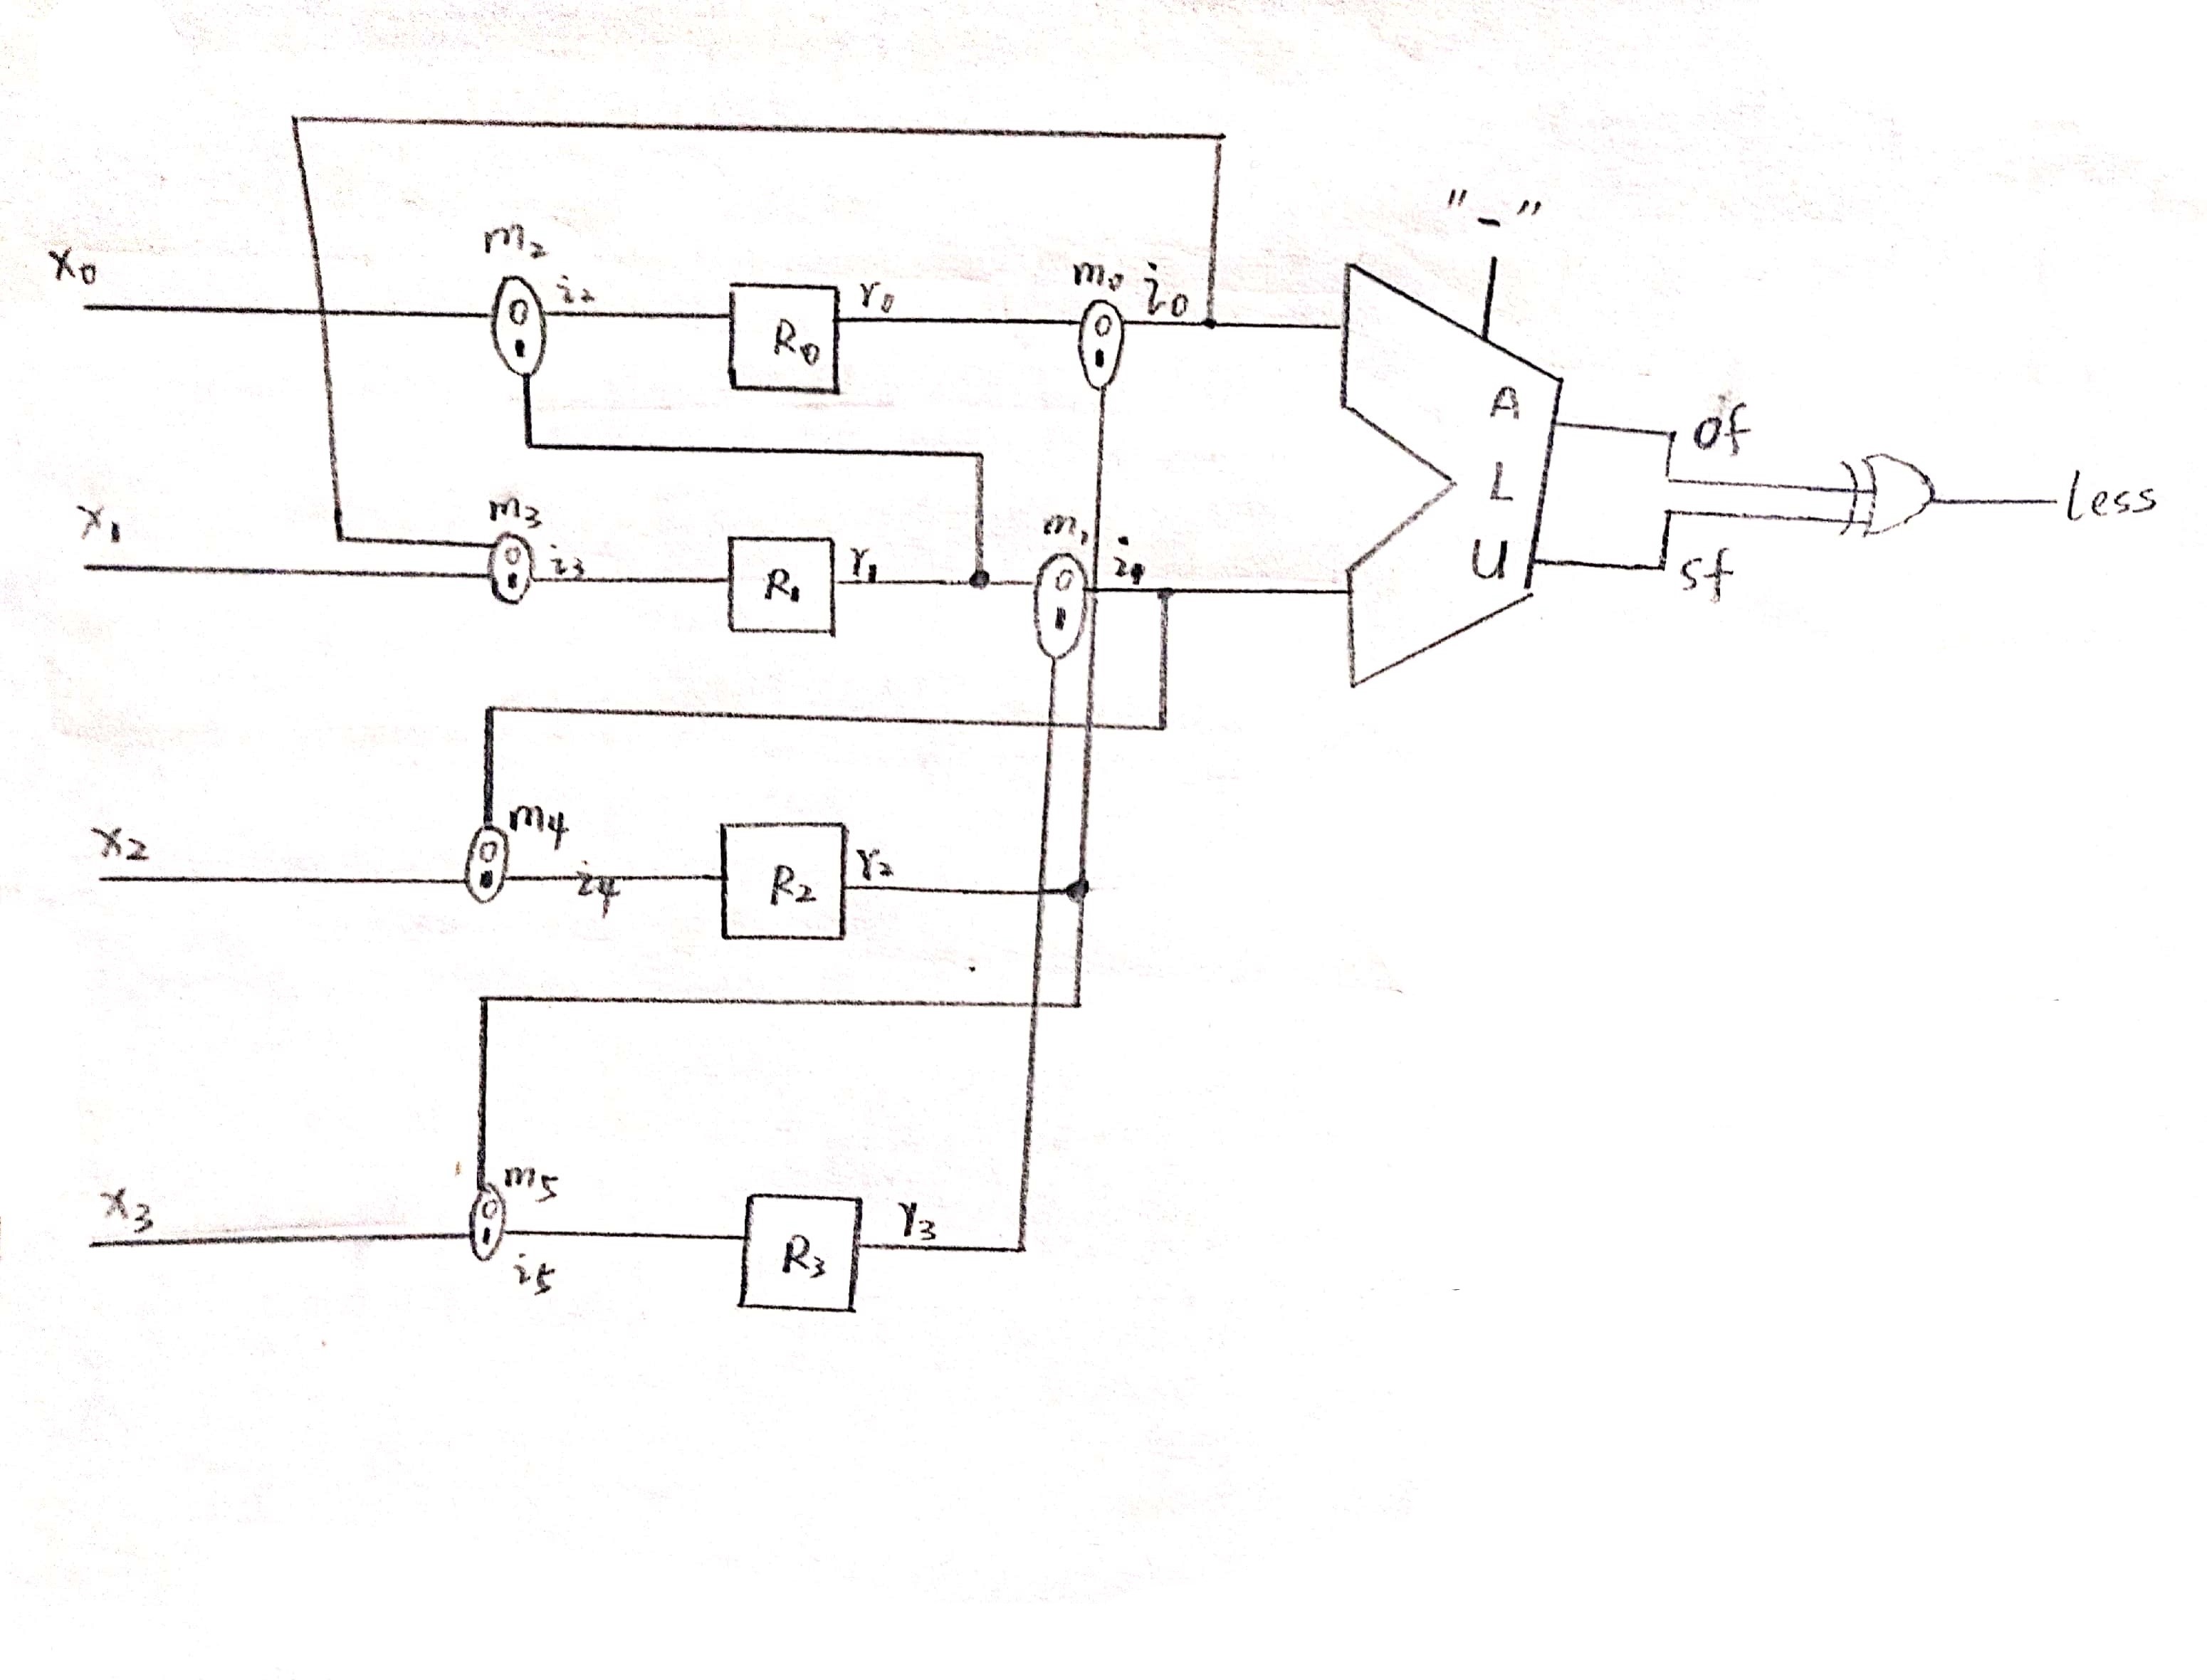 "-"
x0
m2
0
1
i2
R0
r0
m0
0
1
i0
A
L
U
of
sf
less
x1
m3
0
1
i3
R1
r1
m1
0
1
i1
x2
m4
0
1
i4
R2
r2
x3
m5
0
1
i5
R3
r3